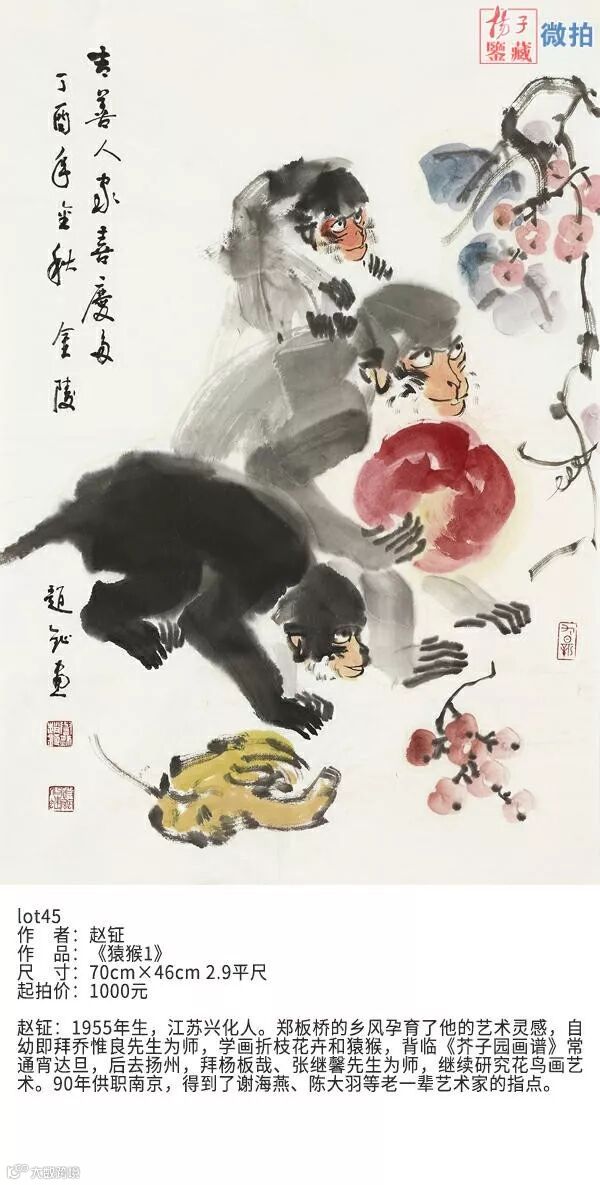 杨子
鉴藏
微拍
吉善人家喜庆多
丁酉年金秋 金陵
赵钲画
lot45
作 者：赵钲
作 品：《猿猴1》
尺 寸：70cm×46cm 2.9平尺
起拍价：1000元
赵钲：1955年生，江苏兴化人。郑板桥的乡风孕育了他的艺术灵感，自
幼即拜乔惟良先生为师，学画折枝花卉和猿猴，背临《芥子园画谱》常
通宵达旦，后去扬州，拜杨板哉、张继馨先生为师，继续研究花鸟画艺
术。90年供职南京，得到了谢海燕、陈大羽等老一辈艺术家的指点。
大盛跨境